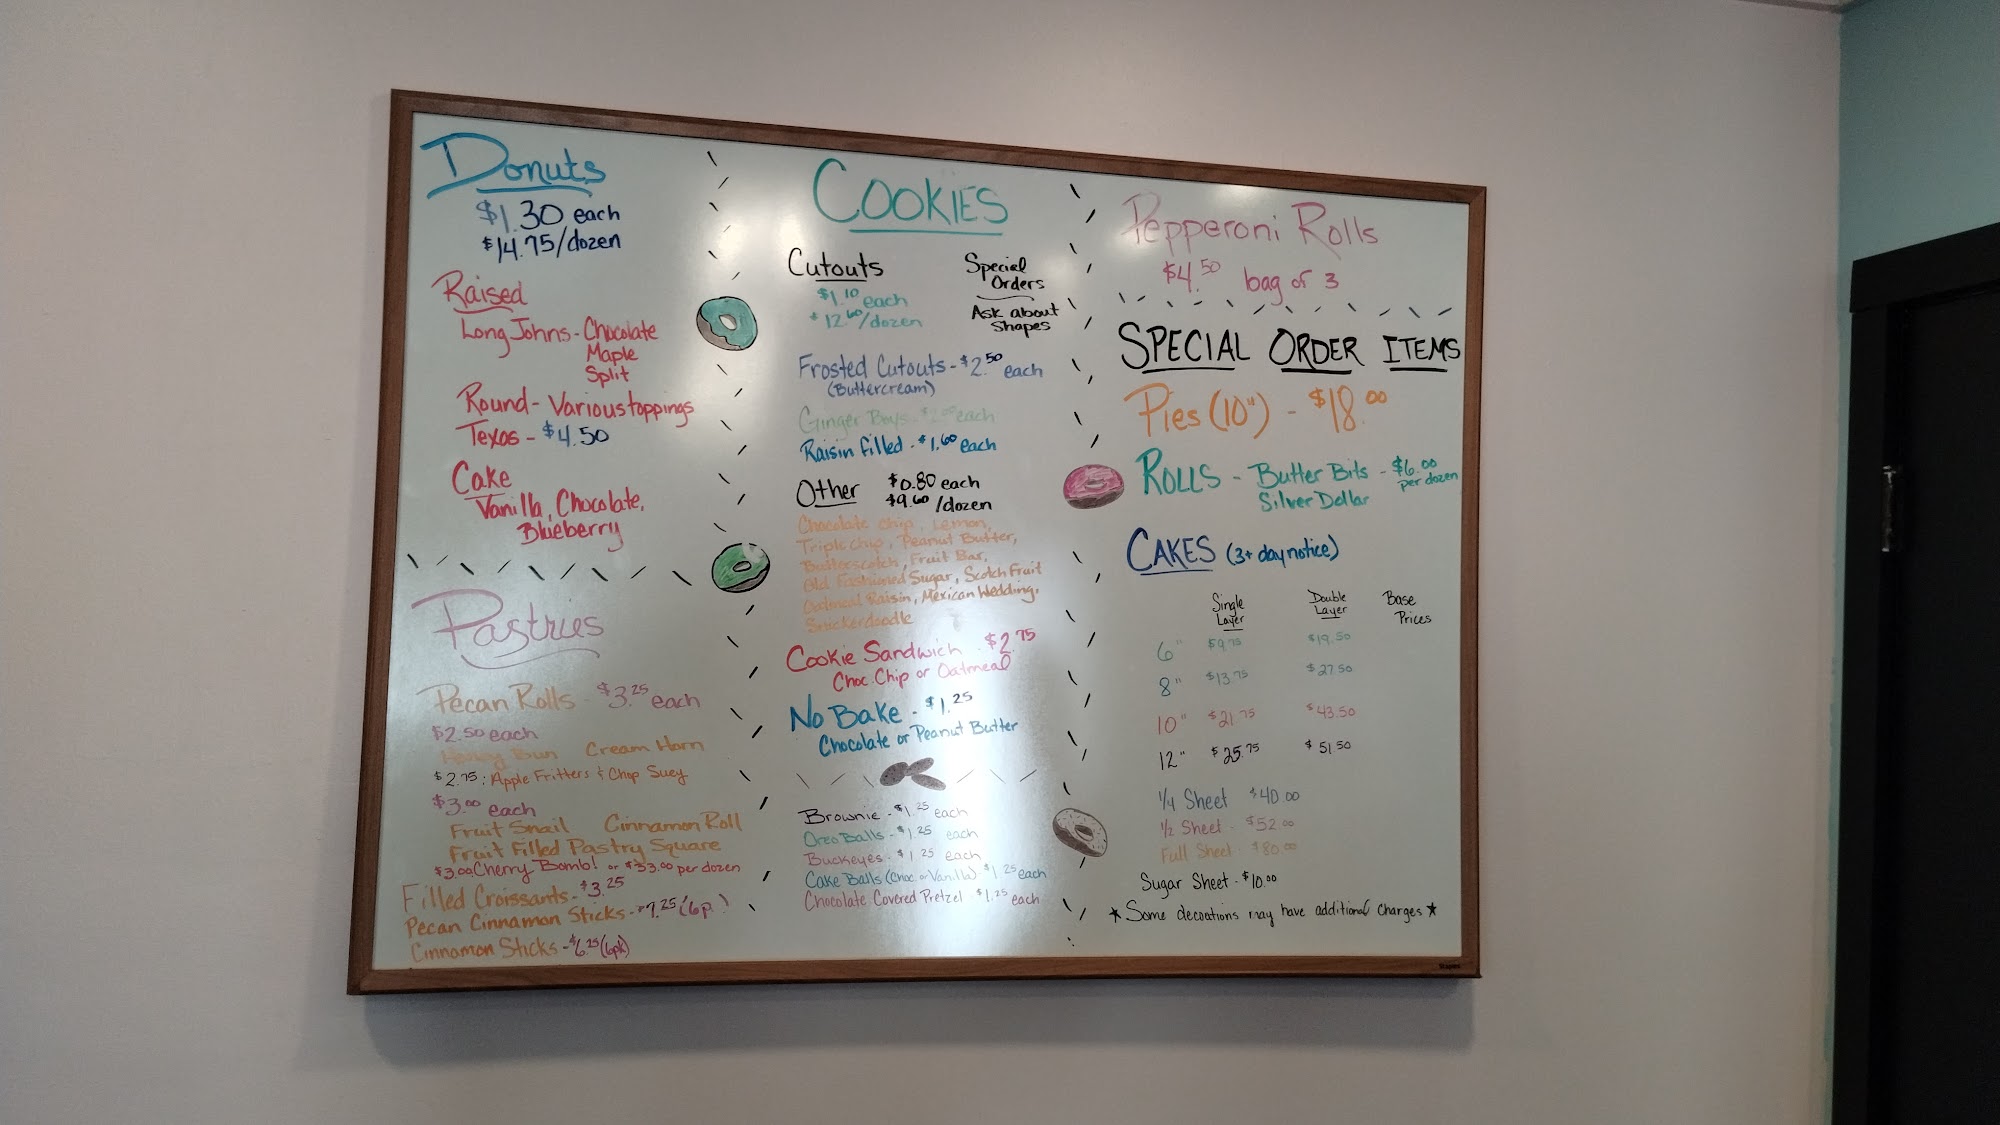 Donuts
$1.30 each
$14.75/dozen
Raised
Long Johns - Chocolate
Maple
Split
Round - Various toppings
Texas - $4.50
Cake
Vanilla, Chocolate,
Blueberry
Pastries
Pecan Rolls - $3.25 each
$2.50 each
Honey Bun Cream Horn
$2.75: Apple Fritters & Chop Suey
$3.00 each
Fruit Snail Cinnamon Roll
Fruit Filled Pastry Square
$3.00 Cherry Bomb! or $33.00 per dozen
Filled Croissants - $3.25
Pecan Cinnamon Sticks - $7.25 (6p.)
Cinnamon Sticks - $6.25 (6pk)
COOKIES
Cutouts
$1.10 each
$12.60/dozen
Special
Orders
Ask about
Shapes
Frosted Cutouts - $2.50 each
(Buttercream)
Ginger Boys - $2.00 each
Raisin filled - $1.60 each
Other $0.80 each
$9.60/dozen
Chocolate Chip, Lemon,
Triple Chip, Peanut Butter,
Butterscotch, Fruit Bar,
Old Fashioned Sugar, Scotch Fruit
Oatmeal Raisin, Mexican Wedding,
Snickerdoodle
Cookie Sandwich - $2.75
Choc. Chip or Oatmeal
No Bake - $1.25
Chocolate or Peanut Butter
Brownie - $1.25 each
Oreo Balls - $1.25 each
Buckeyes - $1.25 each
Cake Balls (Choc. or Vanilla) $1.25 each
Chocolate Covered Pretzel - $1.25 each
Pepperoni Rolls
$4.50 bag of 3
SPECIAL ORDER ITEMS
Pies (10") - $18.00
ROLLS - Butter Bits - $6.00
per dozen
Silver Dollar
CAKES (3+ day notice)
Single
Layer
Double
Layer
Base
Prices
6" $9.75 $19.50
8" $13.75 $27.50
10" $21.75 $43.50
12" $25.75 $51.50
1/4 Sheet $40.00
1/2 Sheet - $52.00
Full Sheet - $80.00
Sugar Sheet - $10.00
★ Some decorations may have additional charges ★